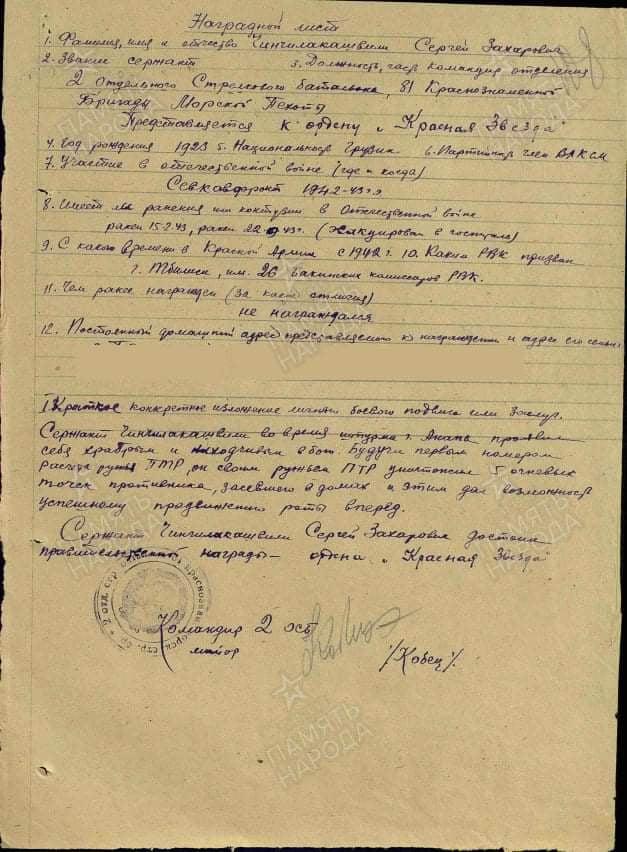 Наградной лист
1. Фамилия, имя и отчество Чинчилакашвили Сергей Захарович
2. Звание сержант 3. Должность, часть командир отделения
2 Отдельного Стрелкового батальона, 81 Краснознаменной
Бригады Морской Пехоты
Представляется к ордену „Красная Звезда"
4. Год рождения 1923 5. Национальность Грузин 6. Партийность член ВЛКСМ
7. Участие в отечественной войне (где и когда)
Севкавфронт 1942-43 г.г
8. Имеет ли ранения или контузии в Отечественной войне
ранен 15.2.43, ранен 22.9.43г. (Эвакуирован в госпиталь)
9. С какого времени в Красной Армии с 1942 г. 10. Каким РВК призван
г. Тбилиси, им. 26 Бакинских комиссаров РВК.
11. Чем ранее награжден (за какие отличия)
не награждался
12. Постоянный домашний адрес представляемого к награждению и адрес его семьи:
I Краткое конкретное изложение личного боевого подвига или заслуг.
Сержант Чинчилакашвили во время штурма г. Анапа проявил
себя храбрым и находчивым в бою. Будучи первым номером
расчета ружья ПТР, он своим ружьем ПТР уничтожил 5 огневых
точек противника, засевшего в домах и этим дал возможность
успешному продвижению роты вперед.
Сержант Чинчилакашвили Сергей Захарович достоин
правительственной награды — ордена „Красная Звезда"
Командир 2 осб
майор /Кобец/.
ПАМЯТЬ
НАРОДА